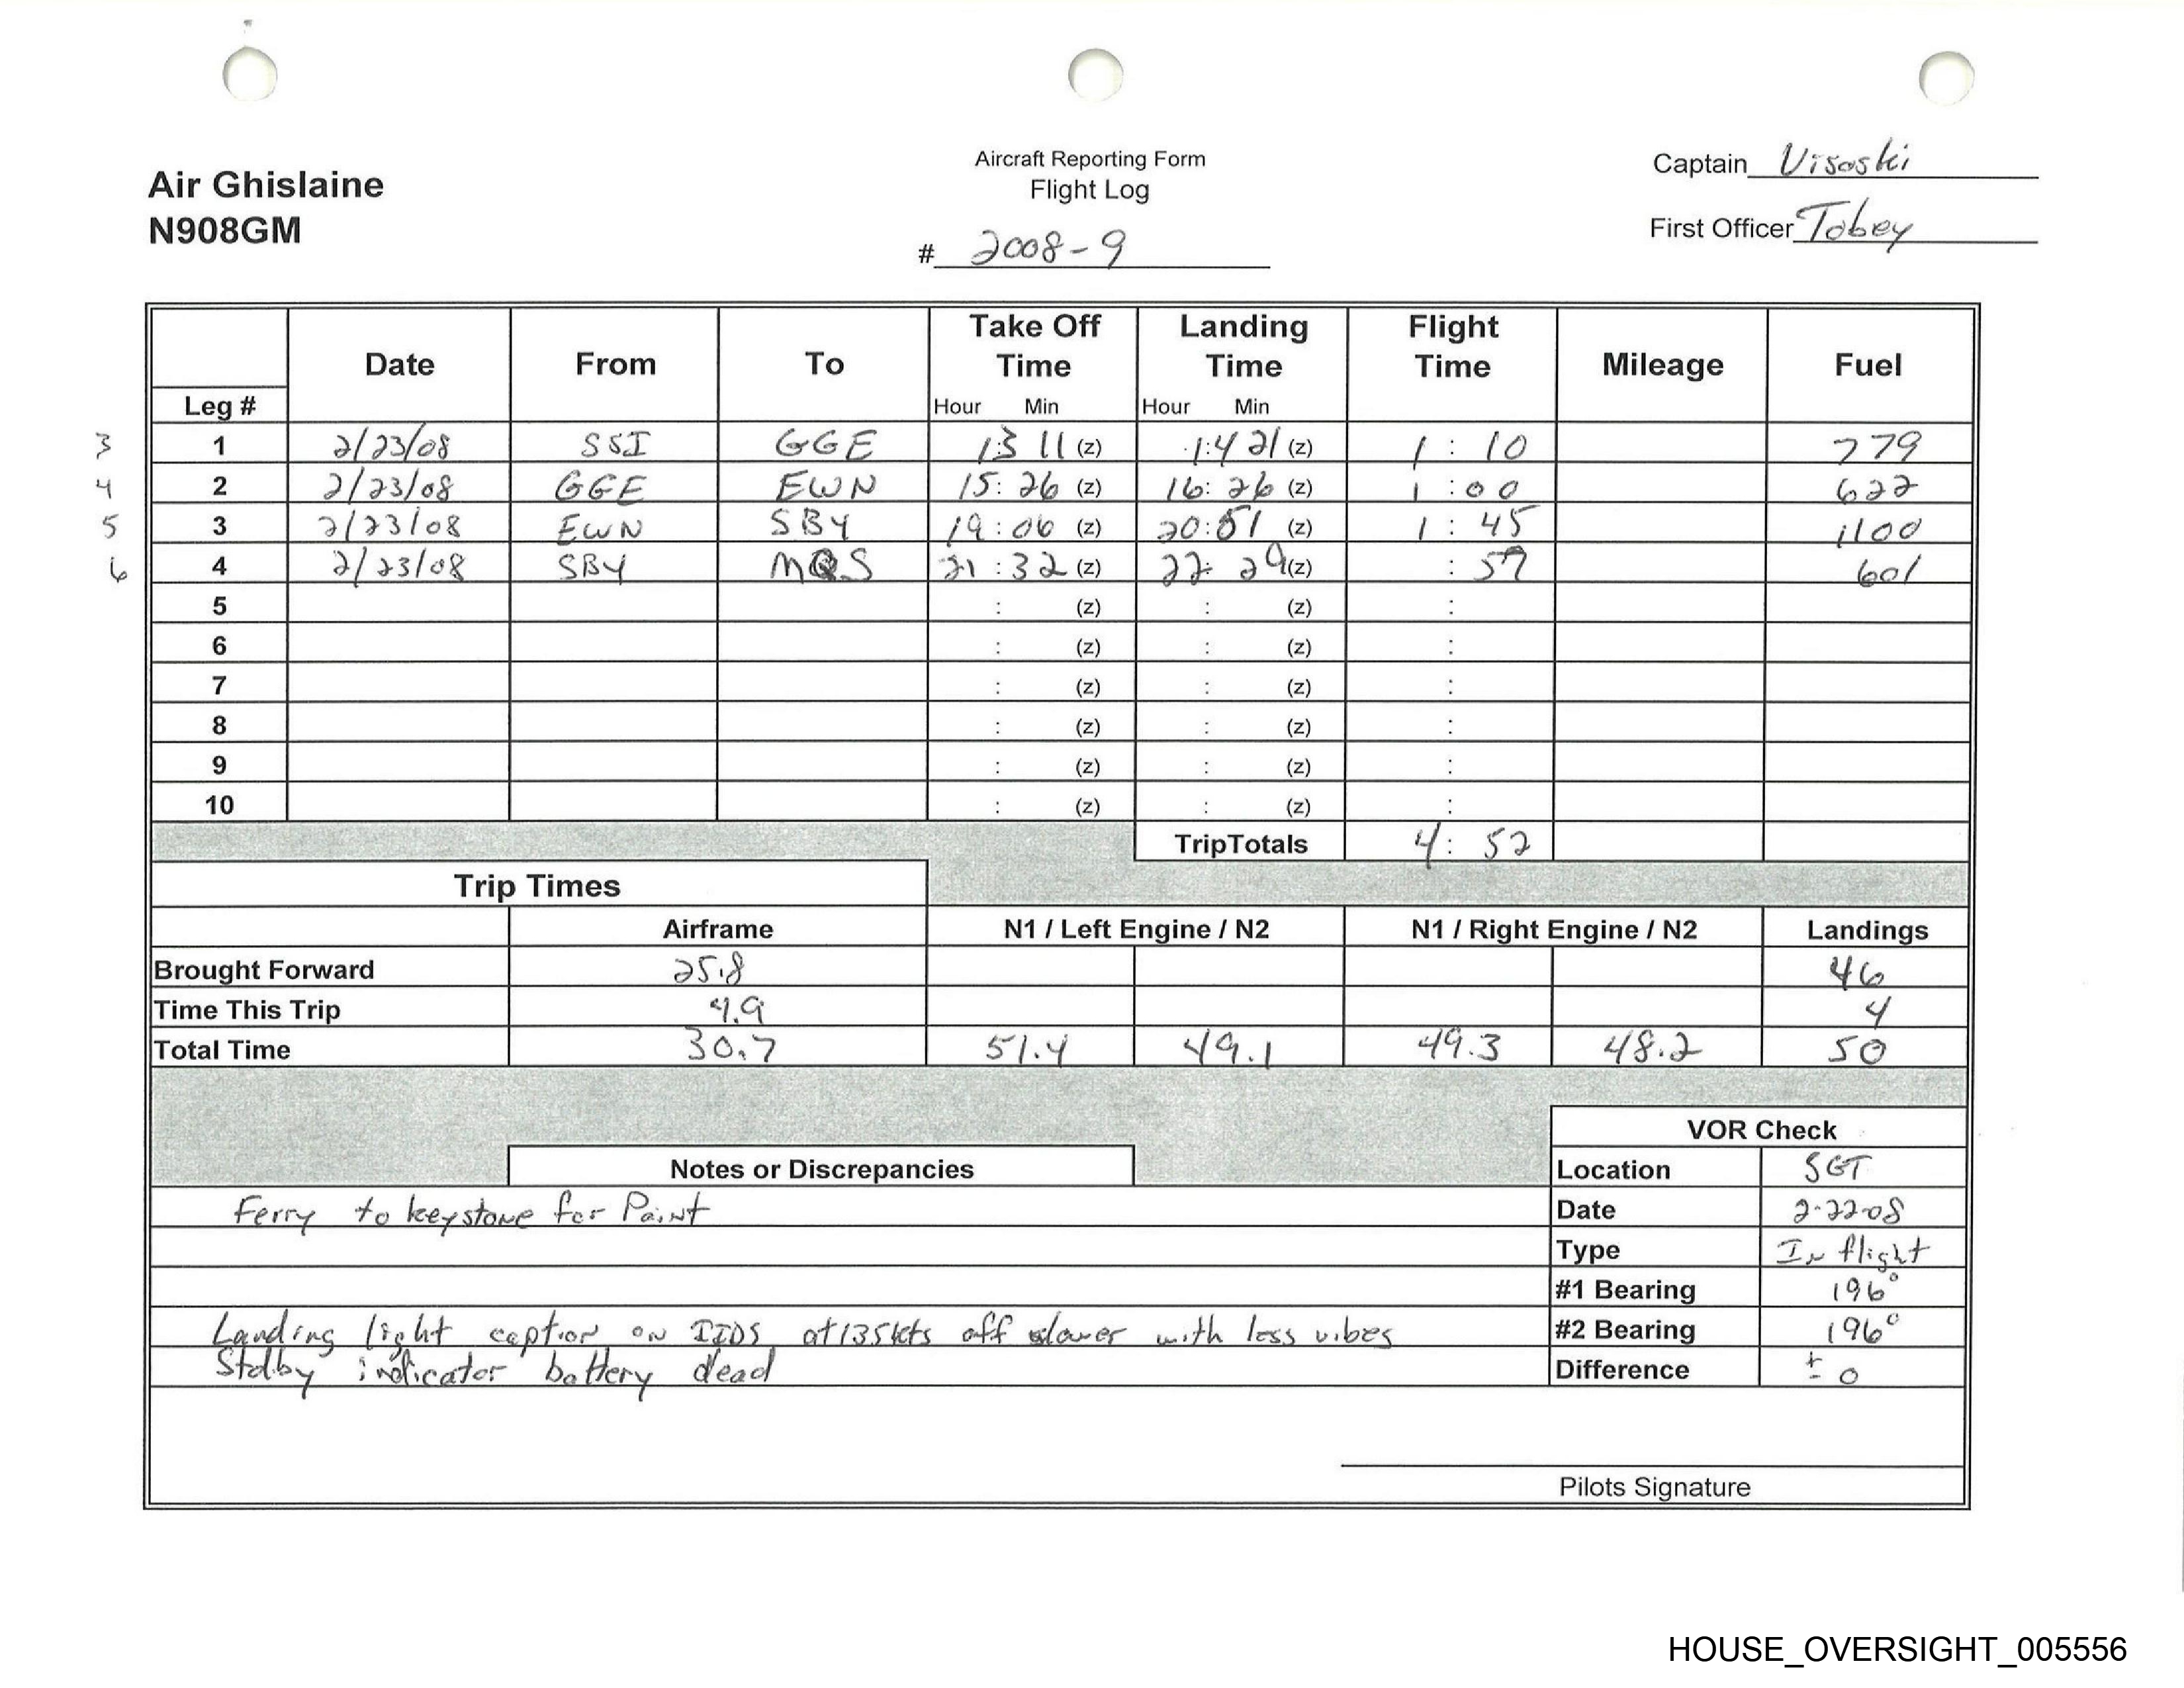 Aircraft Reporting Form
Flight Log
# 2008-9
Air Ghislaine
N908GM
Captain Visoski
First Officer Tobey
Leg # Date From To Take Off Time Hour Min Landing Time Hour Min Flight Time Mileage Fuel
3 1 2/23/08 SSI GGE 13 11 (z) 1:421 (z) 1 : 10 779
4 2 2/23/08 GGE EWN 15:26 (z) 16:26 (z) 1 :00 622
5 3 2/23/08 EWN SBY 19:06 (z) 20:51 (z) 1 : 45 1100
6 4 2/23/08 SBY MQS 21:32 (z) 22:29 (z) : 57 601
5 : (z) : (z) :
6 : (z) : (z) :
7 : (z) : (z) :
8 : (z) : (z) :
9 : (z) : (z) :
10 : (z) : (z) :
TripTotals 4: 52
Trip Times
Airframe N1 / Left Engine / N2 N1 / Right Engine / N2 Landings
Brought Forward 25.8 46
Time This Trip 4.9 4
Total Time 30.7 51.4 49.1 49.3 48.2 50
VOR Check
Notes or Discrepancies
Location SGT
Ferry to keystone for Paint
Date 2-22-08
Type In flight
#1 Bearing 196°
Landing light caption on IIDS at 135kts off slower with less vibes
#2 Bearing 196°
Stdby indicator battery dead
Difference ± 0
Pilots Signature
HOUSE_OVERSIGHT_005556